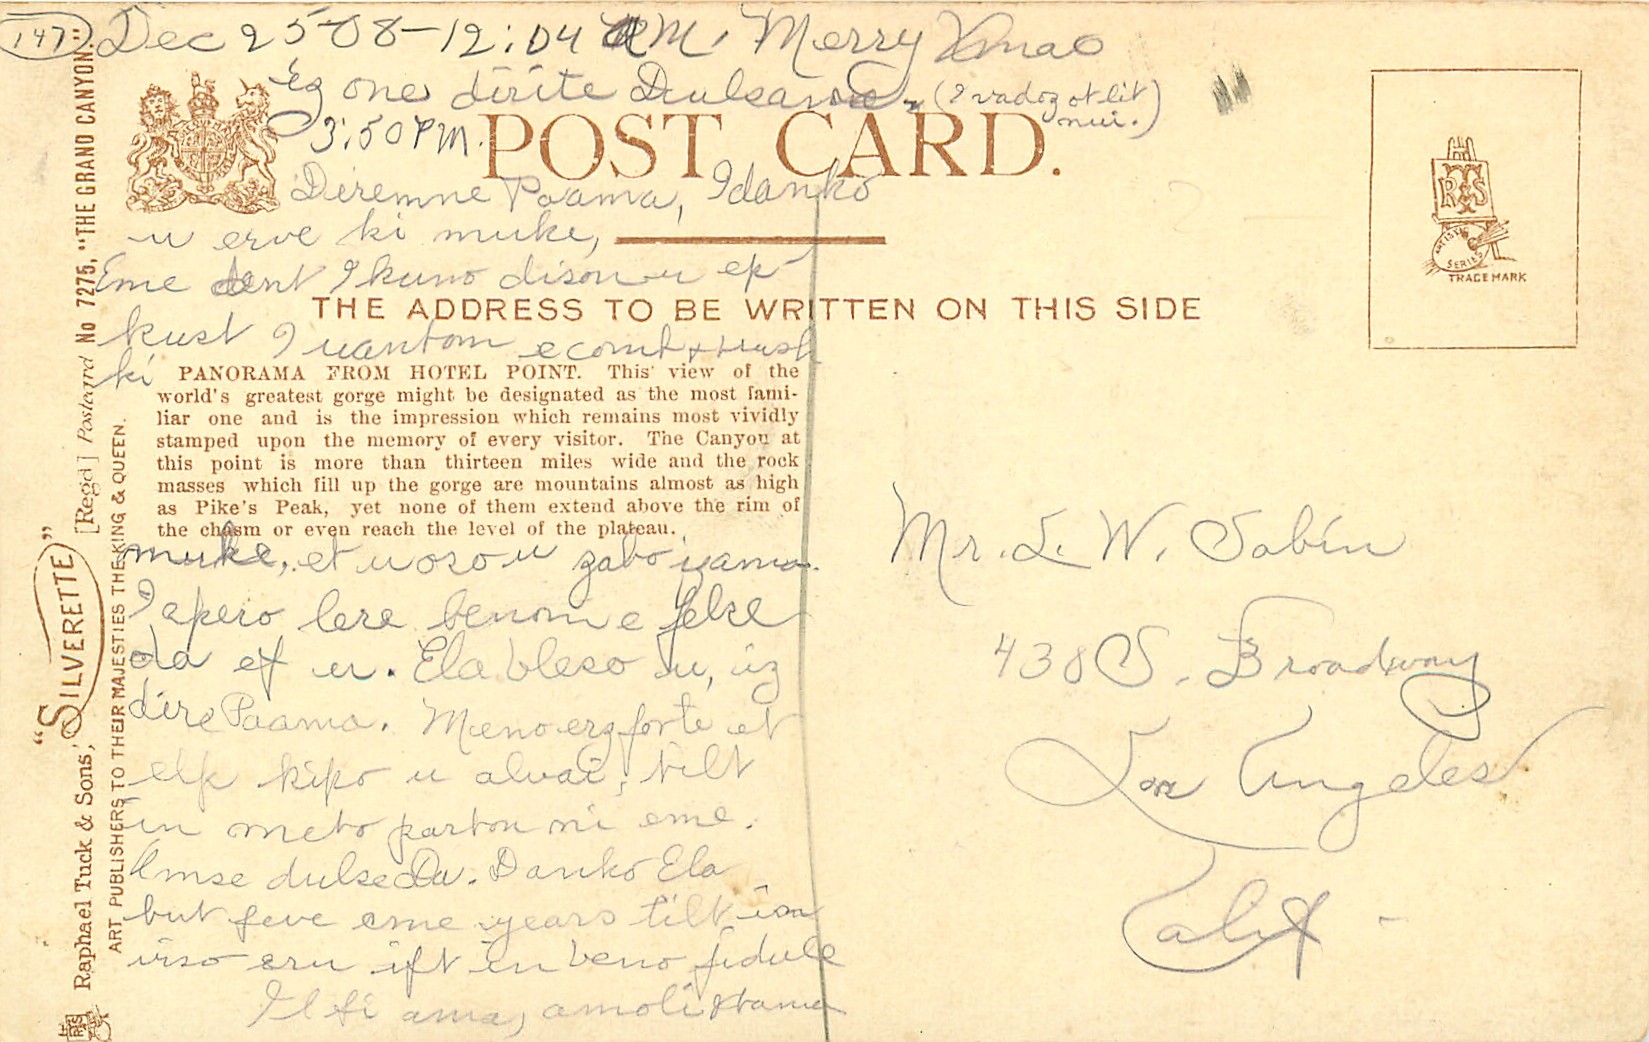 147 Dec 25-08-12:04 AM. Merry Xmas
ez one dirite (I vadoz ot lit
3:50 PM. nui.)
POST CARD.
Diremne Paama, Idanko
u erve ki muke,
Eme I kuno dison u ep
THE ADDRESS TO BE WRITTEN ON THIS SIDE
kust I uantom e
ki
PANORAMA FROM HOTEL POINT. This view of the
world's greatest gorge might be designated as the most fami-
liar one and is the impression which remains most vividly
stamped upon the memory of every visitor. The Canyon at
this point is more than thirteen miles wide and the rock
masses which fill up the gorge are mountains almost as high
as Pike's Peak, yet none of them extend above the rim of
the chasm or even reach the level of the plateau.
muke, et uoso u zabo
I apero lere benom e
da ef u. Ela bleso u, iz
dire Paama. Meno erz forte et
elp kipo u alvai, tilt
in meto parton mi eme.
Amse dulse Da. Danko Ela
but feve eme years tilt
viso eru ift in beno fidule
ama, amoli
Mr. L. W. Sabin
438 S. Broadway
Los Angeles
Calif -
RTS
ARTISTIC
SERIES
TRADE MARK
"SILVERETTE"
Raphael Tuck & Sons' [Regd] Postcard No 7275, "THE GRAND CANYON."
ART PUBLISHERS TO THEIR MAJESTIES THE KING & QUEEN.